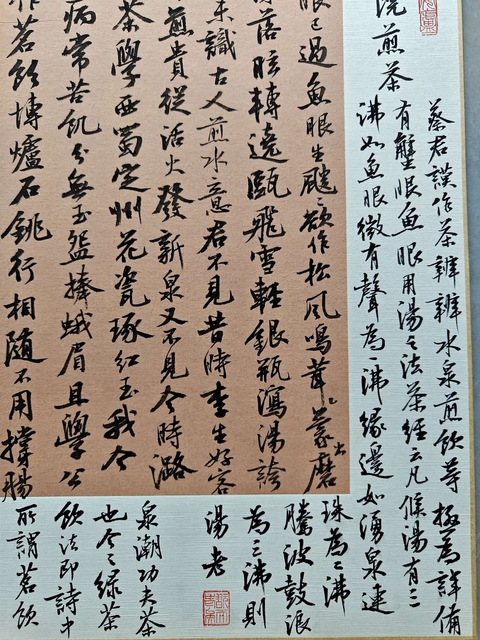 院煎茶
眼已過魚眼生颼颼欲作松風鳴茸茸蒙磨
出
落眩轉遶甌飛雪輕銀瓶瀉湯誇
未識古人煎水意君不見昔時李生好客
煎貴從活火發新泉又不見今時潞
茶學西蜀定州花瓷琢紅玉我今
病常苦飢分無玉盌捧蛾眉且學公
作茗飲塼爐石銚行相隨不用撐腸
蔡君謨作茶辨辨水泉煎飲等極為詳備
有蟹眼魚眼用湯之法茶經云凡候湯有三
沸如魚眼微有聲為一沸緣邊如湧泉連
珠為二沸
騰波鼓浪
為三沸則
湯老
泉潮功夫茶
也今之綠茶
飲法即詩中
所謂茗飲